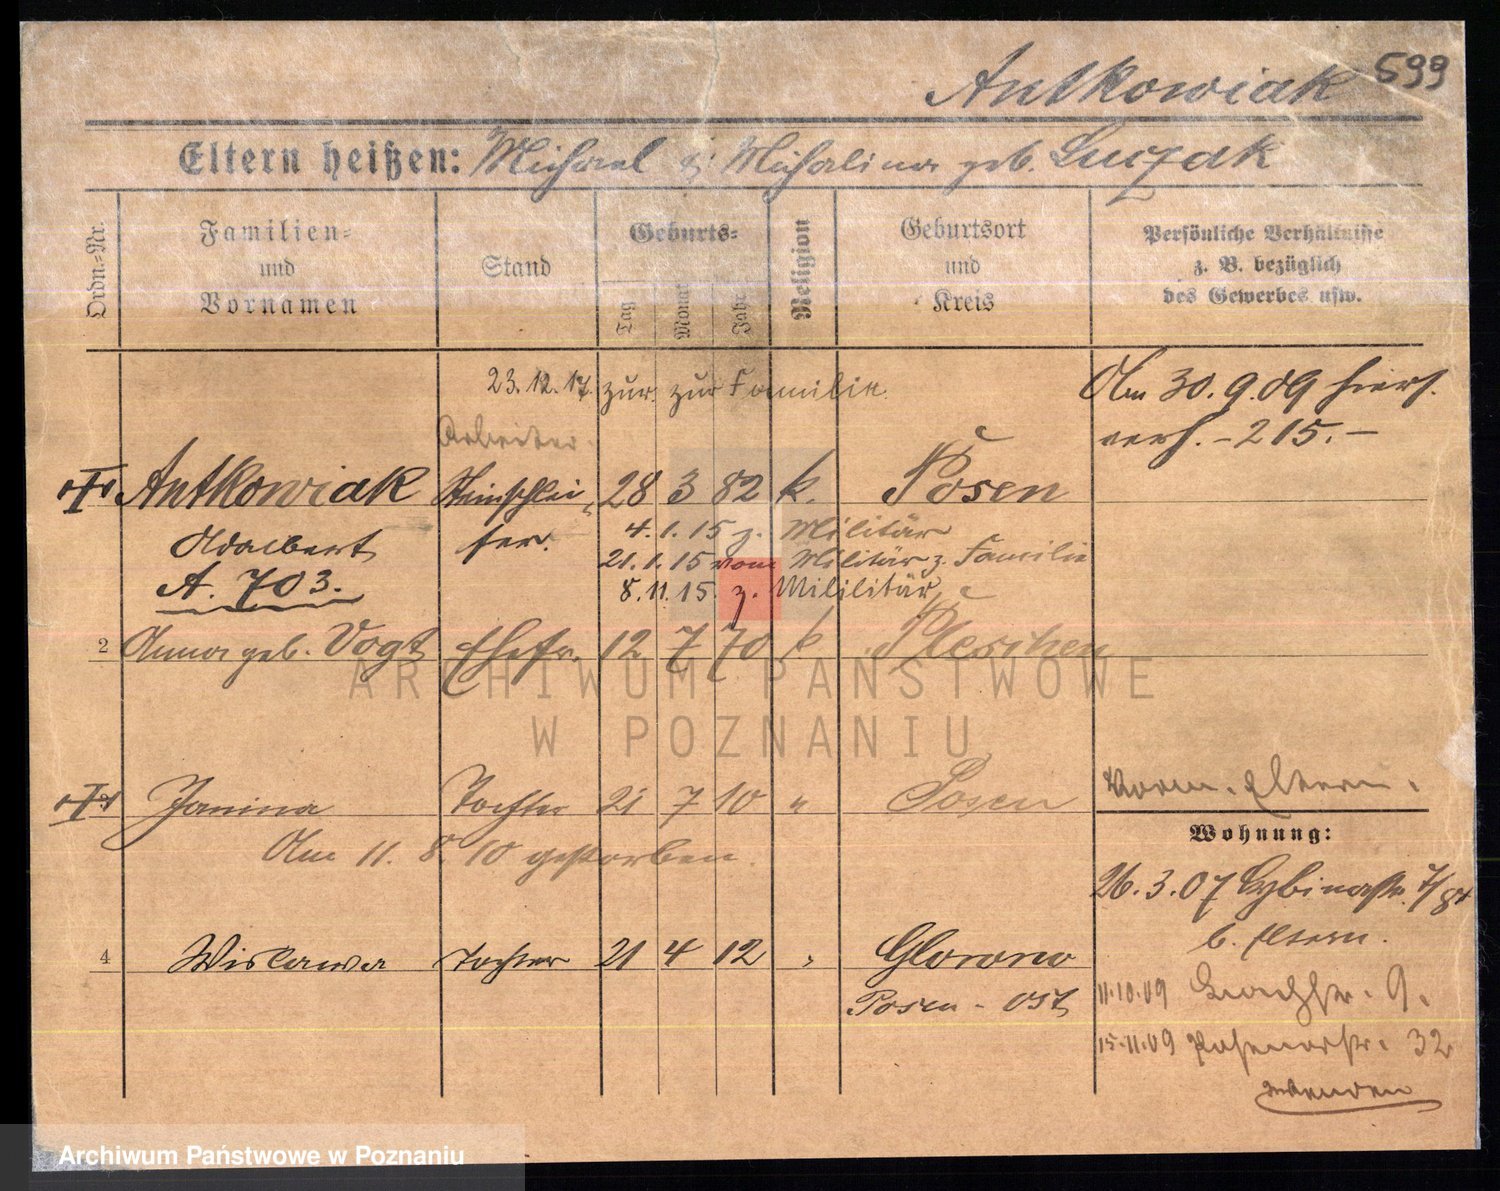 599
Antkowiak
Eltern heißen: Michael & Michalina geb. Luczak
Ordn.-Nr.
Familien- und Vornamen
Stand
Geburts-
Tag
Monat
Jahr
Religion
Geburtsort und Kreis
Persönliche Verhältnisse z. B. bezüglich des Gewerbes usw.
23.12.17. zur. zur Familie.
Am 30.9.09 hiers.
verh. - 215. -
Arbeiter.
Antkowiak Steinschlei- 28 3 82 k. Posen
Adalbert fer. 4.1.15 z. Militär
21.1.15 vom Militär z. Familie
A. 703. 8.11.15. z. Mililitär
2 Anna geb. Vogt Ehefr. 12 7 70 k. Pleschen
ARCHIWUM PAŃSTWOWE
W POZNANIU
Janina Tochter 21 7 10 " Posen
Eltern.
Am 11. 8. 10 gestorben.
Wohnung:
26.3.07
b. Eltern.
4 Wislawa Tochter 21 4 12 " Glowno
Posen - Ost
11.10.09 9.
15.11.09 32
wenden
Archiwum Państwowe w Poznaniu